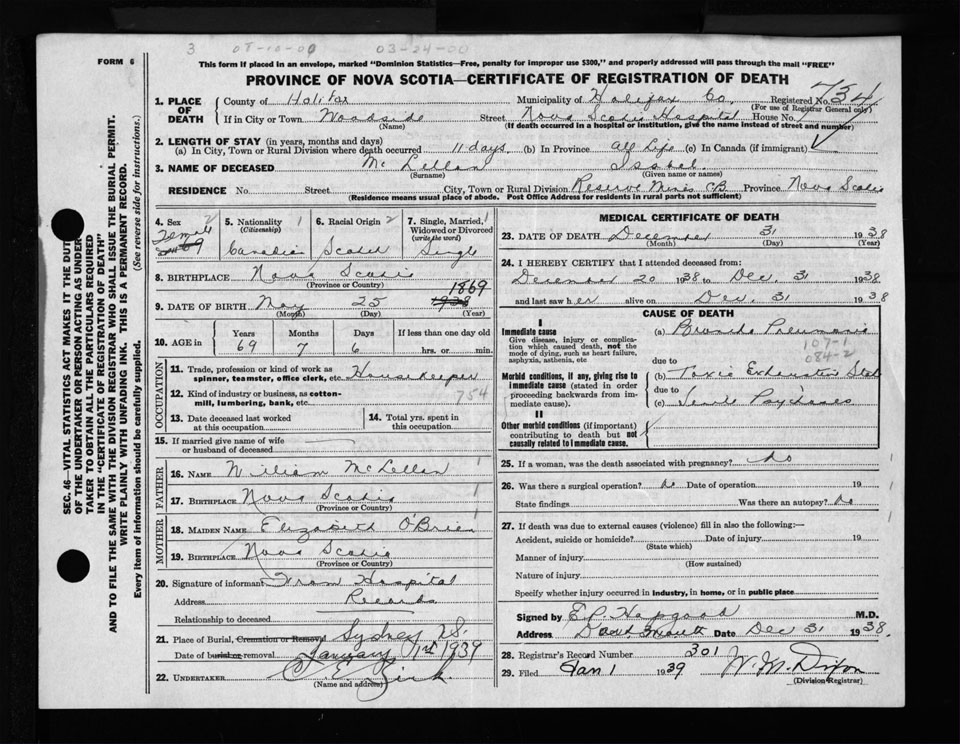 3 OT-10-00 03-24-00
FORM 6
This form if placed in an envelope, marked "Dominion Statistics—Free, penalty for improper use $300," and properly addressed will pass through the mail "FREE"
PROVINCE OF NOVA SCOTIA—CERTIFICATE OF REGISTRATION OF DEATH
SEC. 46—VITAL STATISTICS ACT MAKES IT THE DUTY
OF THE UNDERTAKER OR PERSON ACTING AS UNDER-
TAKER TO OBTAIN ALL THE PARTICULARS REQUIRED
IN THE "CERTIFICATE OF REGISTRATION OF DEATH"
AND TO FILE THE SAME WITH THE DIVISION REGISTRAR WHO SHALL ISSUE THE BURIAL PERMIT.
WRITE PLAINLY WITH UNFADING INK. THIS IS A PERMANENT RECORD.
Every item of information should be carefully supplied. (See reverse side for instructions.)
1. PLACE OF DEATH County of Halifax Municipality of Halifax Co. Registered No. 734
(For use of Registrar General only)
If in City or Town Woodside Street Nova Scotia Hospital House No.
(Name) (If death occurred in a hospital or institution, give the name instead of street and number)
2. LENGTH OF STAY (in years, months and days)
(a) In City, Town or Rural Division where death occurred 11 days (b) In Province all life (c) In Canada (if immigrant)
3. NAME OF DECEASED Mc Lellan Isabel
(Surname) (Given name or names)
RESIDENCE No. Street City, Town or Rural Division Reserve Mines CB. Province Nova Scotia
(Residence means usual place of abode. Post Office Address for residents in rural parts not sufficient)
4. Sex 2 5. Nationality 1 6. Racial Origin 2 7. Single, Married, 1
(Citizenship) Widowed or Divorced
(write the word)
Female Canadian Scotch Single
69
8. BIRTHPLACE Nova Scotia
(Province or Country)
1869
9. DATE OF BIRTH May 25 1938
(Month) (Day) (Year)
10. AGE in Years Months Days If less than one day old
69 7 6 hrs. or min.
OCCUPATION
11. Trade, profession or kind of work as
spinner, teamster, office clerk, etc. Housekeeper
12. Kind of industry or business, as cotton-
mill, lumbering, bank, etc. 754
13. Date deceased last worked
at this occupation
14. Total yrs. spent in
this occupation
15. If married give name of wife
or husband of deceased
FATHER
16. NAME William McLellan 1
17. BIRTHPLACE Nova Scotia
(Province or Country)
MOTHER
18. MAIDEN NAME Elizabeth O'Brien 1
19. BIRTHPLACE Nova Scotia
(Province or Country)
20. Signature of informant From Hospital
Address Records
Relationship to deceased
21. Place of Burial, Cremation or Removal Sydney N.S.
Date of burial or removal January 1st 1939
22. UNDERTAKER
(Name and address)
MEDICAL CERTIFICATE OF DEATH
23. DATE OF DEATH December 31 1938
(Month) (Day) (Year)
24. I HEREBY CERTIFY that I attended deceased from:
December 20 1938 to Dec. 31 1938
and last saw her alive on Dec. 31 1938
CAUSE OF DEATH
I
Immediate cause (a) Broncho Pneumonia
Give disease, injury or complica-
tion which caused death, not the
mode of dying, such as heart failure,
asphyxia, asthenia, etc
107-1
084-2
due to
Morbid conditions, if any, giving rise to
immediate cause (stated in order
proceeding backwards from im-
mediate cause).
(b) Toxic Exhaustive State
due to
(c) Senile Psychoses
II
Other morbid conditions (if important)
contributing to death but not
causally related to immediate cause.
25. If a woman, was the death associated with pregnancy? No
26. Was there a surgical operation? No Date of operation 19
State findings Was there an autopsy? No
27. If death was due to external causes (violence) fill in also the following:—
Accident, suicide or homicide? Date of injury 19
(State which)
Manner of injury
(How sustained)
Nature of injury
Specify whether injury occurred in industry, in home, or in public place
Signed by E.P. Hapgood M.D.
Address Dartmouth Date Dec 31 1938.
28. Registrar's Record Number 301
29. Filed Jan 1 1939 W. M. Dixon
(Division Registrar)